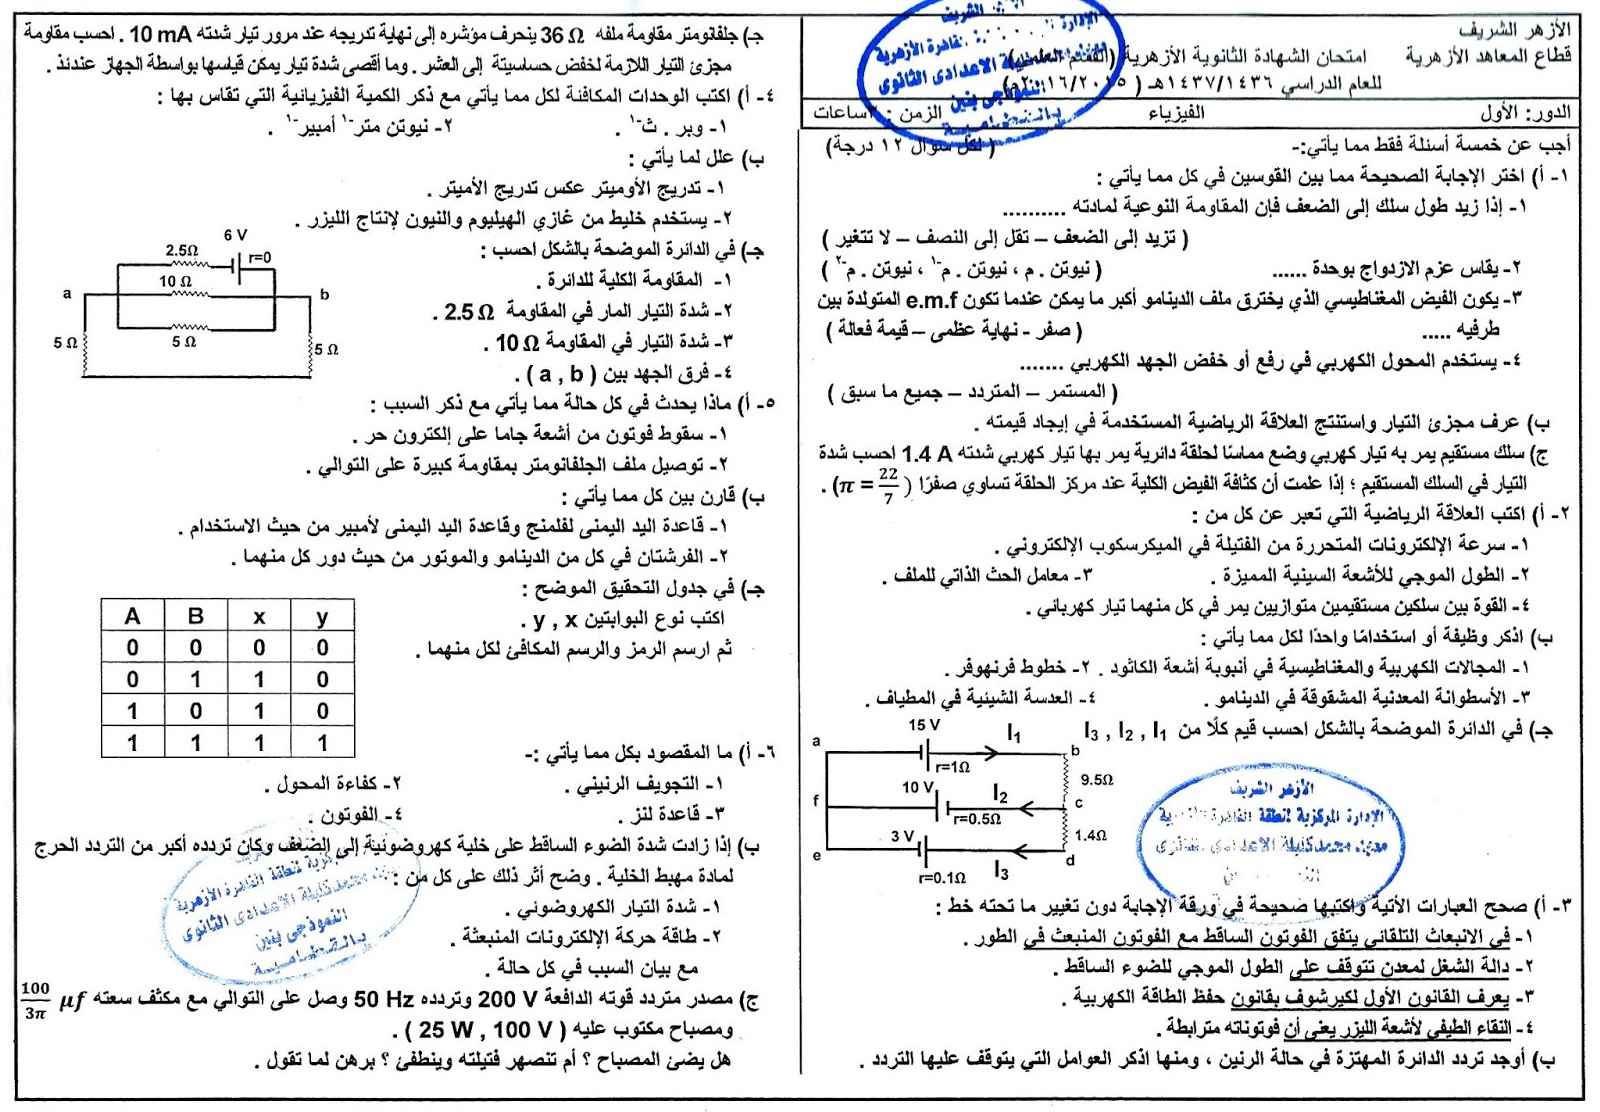 الأزهر الشريف
قطاع المعاهد الأزهرية امتحان الشهادة الثانوية الأزهرية (القسم العلمي)
للعام الدراسي ١٤٣٧/١٤٣٦هـ (٢٠١٦/٢٠١٥م)
الدور: الأول الفيزياء الزمن : ٣ساعات
أجب عن خمسة أسئلة فقط مما يأتي:- ( لكل سؤال ١٢ درجة)
١- أ) اختر الإجابة الصحيحة مما بين القوسين في كل مما يأتي :
١- إذا زيد طول سلك إلى الضعف فإن المقاومة النوعية لمادته ..........
( تزيد إلى الضعف – تقل إلى النصف – لا تتغير )
٢- يقاس عزم الازدواج بوحدة ...... ( نيوتن . م ، نيوتن . م⁻¹ ، نيوتن . م⁻² )
٣- يكون الفيض المغناطيسي الذي يخترق ملف الدينامو أكبر ما يمكن عندما تكون e.m.f المتولدة بين
طرفيه ..... ( صفر - نهاية عظمى – قيمة فعالة )
٤- يستخدم المحول الكهربي في رفع أو خفض الجهد الكهربي .......
( المستمر – المتردد – جميع ما سبق )
ب) عرف مجزئ التيار واستنتج العلاقة الرياضية المستخدمة في إيجاد قيمته .
ج) سلك مستقيم يمر به تيار كهربي وضع مماسًا لحلقة دائرية يمر بها تيار كهربي شدته 1.4 A احسب شدة
التيار في السلك المستقيم ؛ إذا علمت أن كثافة الفيض الكلية عند مركز الحلقة تساوي صفرًا (π = 22/7) .
٢- أ) اكتب العلاقة الرياضية التي تعبر عن كل من :
١- سرعة الإلكترونات المتحررة من الفتيلة في الميكرسكوب الإلكتروني .
٢- الطول الموجي للأشعة السينية المميزة . ٣- معامل الحث الذاتي للملف .
٤- القوة بين سلكين مستقيمين متوازيين يمر في كل منهما تيار كهربائي .
ب) اذكر وظيفة أو استخدامًا واحدًا لكل مما يأتي :
١- المجالات الكهربية والمغناطيسية في أنبوبة أشعة الكاثود . ٢- خطوط فرنهوفر .
٣- الأسطوانة المعدنية المشقوقة في الدينامو . ٤- العدسة الشيئية في المطياف .
جـ) في الدائرة الموضحة بالشكل احسب قيم كلًا من I₁ , I₂ , I₃
a 15 V I₁ b
r=1Ω
9.5Ω
f 10 V I₂ c
r=0.5Ω
1.4Ω
e 3 V d
r=0.1Ω I₃
الأزهر الشريف
الإدارة المركزية لمنطقة القاهرة الأزهرية
٣- أ) صحح العبارات الأتية واكتبها صحيحة في ورقة الإجابة دون تغيير ما تحته خط :
١- في الانبعاث التلقائي يتفق الفوتون الساقط مع الفوتون المنبعث في الطور .
٢- دالة الشغل لمعدن تتوقف على الطول الموجي للضوء الساقط .
٣- يعرف القانون الأول لكيرشوف بقانون حفظ الطاقة الكهربية .
٤- النقاء الطيفي لأشعة الليزر يعني أن فوتوناته مترابطة .
ب) أوجد تردد الدائرة المهتزة في حالة الرنين ، ومنها اذكر العوامل التي يتوقف عليها التردد .
جـ) جلفانومتر مقاومة ملفه 36 Ω ينحرف مؤشره إلى نهاية تدريجه عند مرور تيار شدته 10 mA . احسب مقاومة
مجزئ التيار اللازمة لخفض حساسيتة إلى العشر . وما أقصى شدة تيار يمكن قياسها بواسطة الجهاز عندئذ .
٤- أ) اكتب الوحدات المكافئة لكل مما يأتي مع ذكر الكمية الفيزيائية التي تقاس بها :
١- وبر . ث⁻¹ . ٢- نيوتن متر⁻¹ أمبير⁻¹ .
ب) علل لما يأتي :
١- تدريج الأوميتر عكس تدريج الأميتر .
٢- يستخدم خليط من غازي الهيليوم والنيون لإنتاج الليزر .
جـ) في الدائرة الموضحة بالشكل احسب :
١- المقاومة الكلية للدائرة .
٢- شدة التيار المار في المقاومة 2.5 Ω .
٣- شدة التيار في المقاومة 10 Ω .
٤- فرق الجهد بين ( a , b ) .
6 V
2.5Ω r=0
10 Ω
a b
5 Ω 5 Ω 5 Ω
٥- أ) ماذا يحدث في كل حالة مما يأتي مع ذكر السبب :
١- سقوط فوتون من أشعة جاما على إلكترون حر .
٢- توصيل ملف الجلفانومتر بمقاومة كبيرة على التوالي .
ب) قارن بين كل مما يأتي :
١- قاعدة اليد اليمنى لفلمنج وقاعدة اليد اليمنى لأمبير من حيث الاستخدام .
٢- الفرشتان في كل من الدينامو والموتور من حيث دور كل منهما .
جـ) في جدول التحقيق الموضح :
اكتب نوع البوابتين y , x .
ثم ارسم الرمز والرسم المكافئ لكل منهما .
A B x y
0 0 0 0
0 1 1 0
1 0 1 0
1 1 1 1
٦- أ) ما المقصود بكل مما يأتي :-
١- التجويف الرنيني . ٢- كفاءة المحول .
٣- قاعدة لنز . ٤- الفوتون .
ب) إذا زادت شدة الضوء الساقط على خلية كهروضوئية إلى الضعف وكان تردده أكبر من التردد الحرج
لمادة مهبط الخلية . وضح أثر ذلك على كل من :
١- شدة التيار الكهروضوئي .
٢- طاقة حركة الإلكترونات المنبعثة .
مع بيان السبب في كل حالة .
ج) مصدر متردد قوته الدافعة 200 V وتردده 50 Hz وصل على التوالي مع مكثف سعته 100/3π μf
ومصباح مكتوب عليه ( 25 W , 100 V ) .
هل يضئ المصباح ؟ أم تنصهر فتيلته وينطفئ ؟ برهن لما تقول .